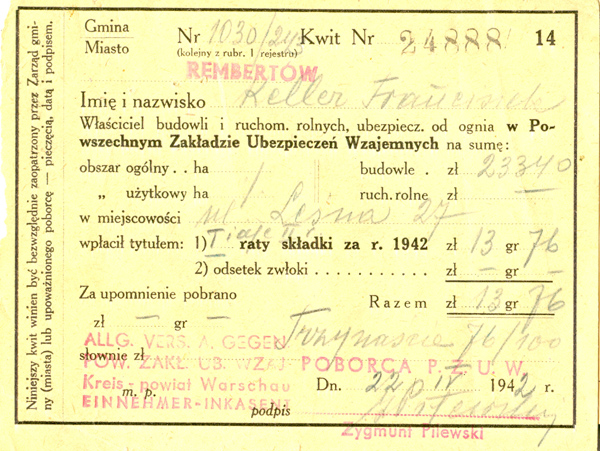 Niniejszy kwit winien być bezwzględnie zaopatrzony przez Zarząd gmi-
ny (miasta) lub upoważnionego poborcę — pieczęcią, datą i podpisem.
Gmina
Miasto
Nr 1030/242 Kwit Nr 24888 14
(kolejny z rubr. 1 rejestru)
REMBERTÓW
Imię i nazwisko Keller Franciszek
Właściciel budowli i ruchom. rolnych, ubezpiecz. od ognia w Po-
wszechnym Zakładzie Ubezpieczeń Wzajemnych na sumę:
obszar ogólny . . ha budowle . zł 23340
„ użytkowy ha ruch. rolne zł —
w miejscowości ul Leśna 27
wpłacił tytułem: 1) I raty składki za r. 1942 zł 13 gr 76
2) odsetek zwłoki . . . . . . . . . . zł — gr —
Za upomnienie pobrano Razem zł 13 gr 76
zł — gr —
słownie zł Trzynaście 76/100
ALLG. VERS. A. GEGEN
POW. ZAKŁ. UB. WZAJ. POBORCA P. Z. U. W.
Kreis - powiat Warschau
EINNEHMER-INKASENT
m. p. Dn. 22 IV 1942 r.
podpis
Zygmunt Pilewski